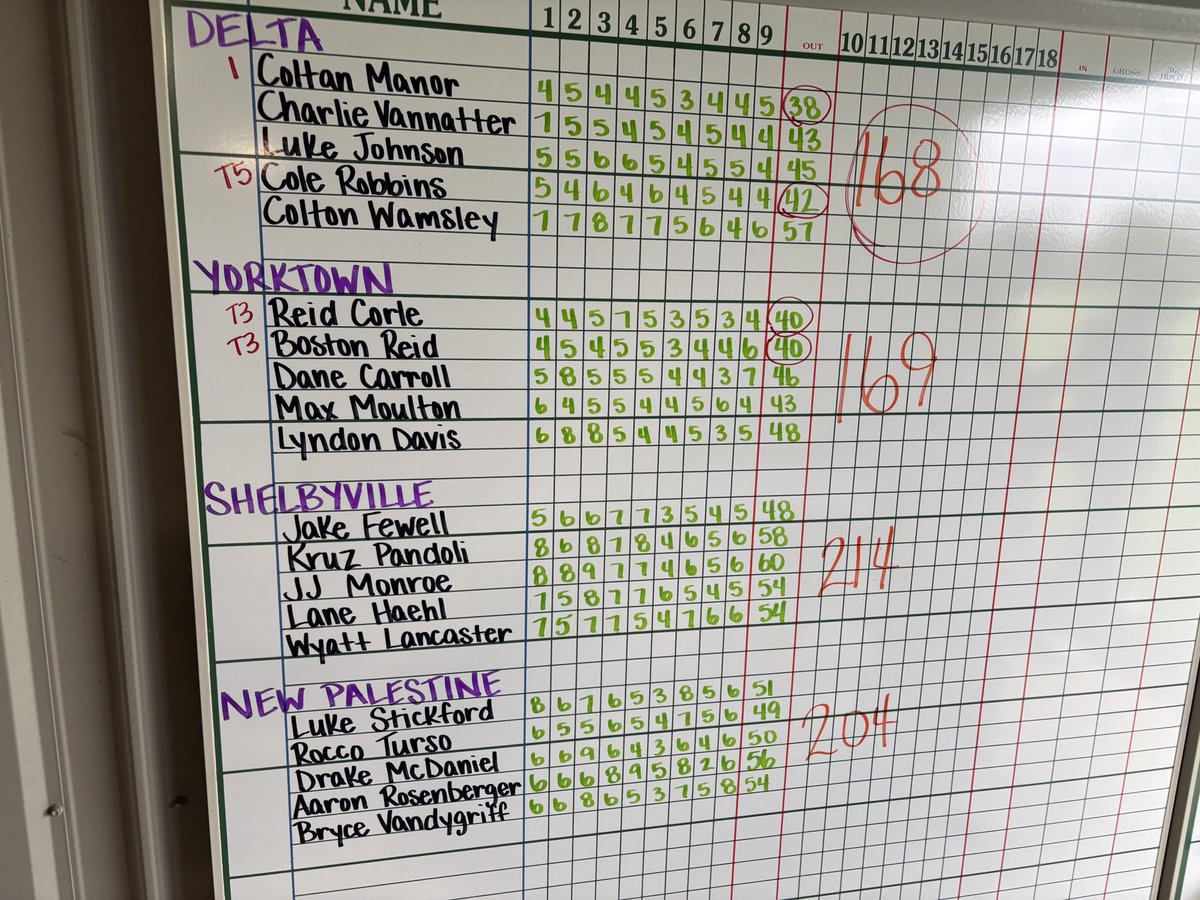 NAME 1 2 3 4 5 6 7 8 9 OUT 10 11 12 13 14 15 16 17 18 IN GROSS HDCP
DELTA
1 Coltan Manor 4 5 4 4 5 3 4 4 5 38
Charlie Vannatter 7 5 5 4 5 4 5 4 4 43
Luke Johnson 5 5 6 6 5 4 5 5 4 45
T5 Cole Robbins 5 4 6 4 6 4 5 4 4 42
Colton Wamsley 7 7 8 7 7 5 6 4 6 57
168
YORKTOWN
T3 Reid Corle 4 4 5 7 5 3 5 3 4 40
T3 Boston Reid 4 5 4 5 5 3 4 4 6 40
Dane Carroll 5 8 5 5 5 4 4 3 7 46
Max Moulton 6 4 5 5 4 4 5 6 4 43
Lyndon Davis 6 8 8 5 4 4 5 3 5 48
169
SHELBYVILLE
Jake Fewell 5 6 6 7 7 3 5 4 5 48
Kruz Pandoli 8 6 8 7 8 4 6 5 6 58
JJ Monroe 8 8 9 7 7 4 6 5 6 60
Lane Haehl 7 5 8 7 7 6 5 4 5 54
Wyatt Lancaster 7 5 7 7 5 4 7 6 6 54
214
NEW PALESTINE
Luke Stickford 8 6 7 6 5 3 8 5 6 51
Rocco Turso 6 5 5 6 5 4 7 5 6 49
Drake McDaniel 6 6 9 6 4 3 6 4 6 50
Aaron Rosenberger 6 6 6 8 9 5 8 2 6 56
Bryce Vandygriff 6 6 8 6 5 3 7 5 8 54
204